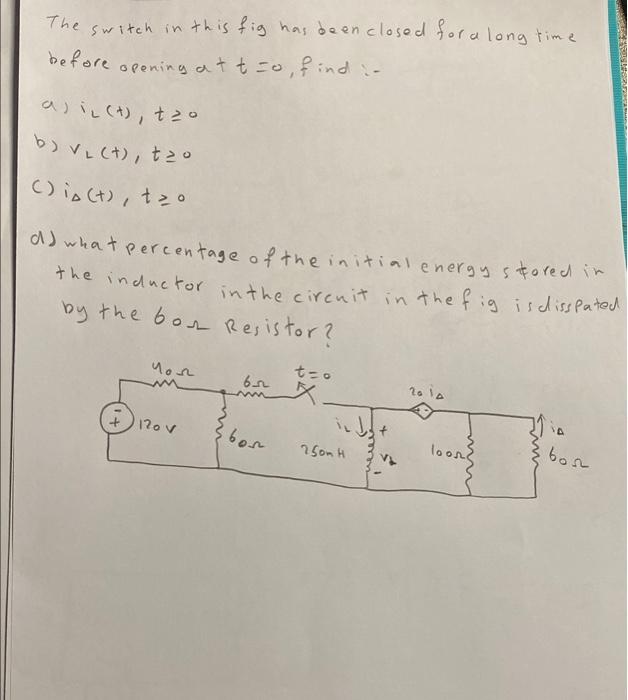 The switch in this fig has been closed for a long time
before opening at t=0, find :-
a) iL(t), t≥0
b) vL(t), t≥0
c) iΔ(t), t≥0
d) what percentage of the initial energy stored in
the inductor in the circuit in the fig is disspated
by the 60Ω Resistor?
40Ω
6Ω
t=0
20iΔ
- +
120v
60Ω
iL
+
250mH
vL
-
100Ω
iΔ
60Ω